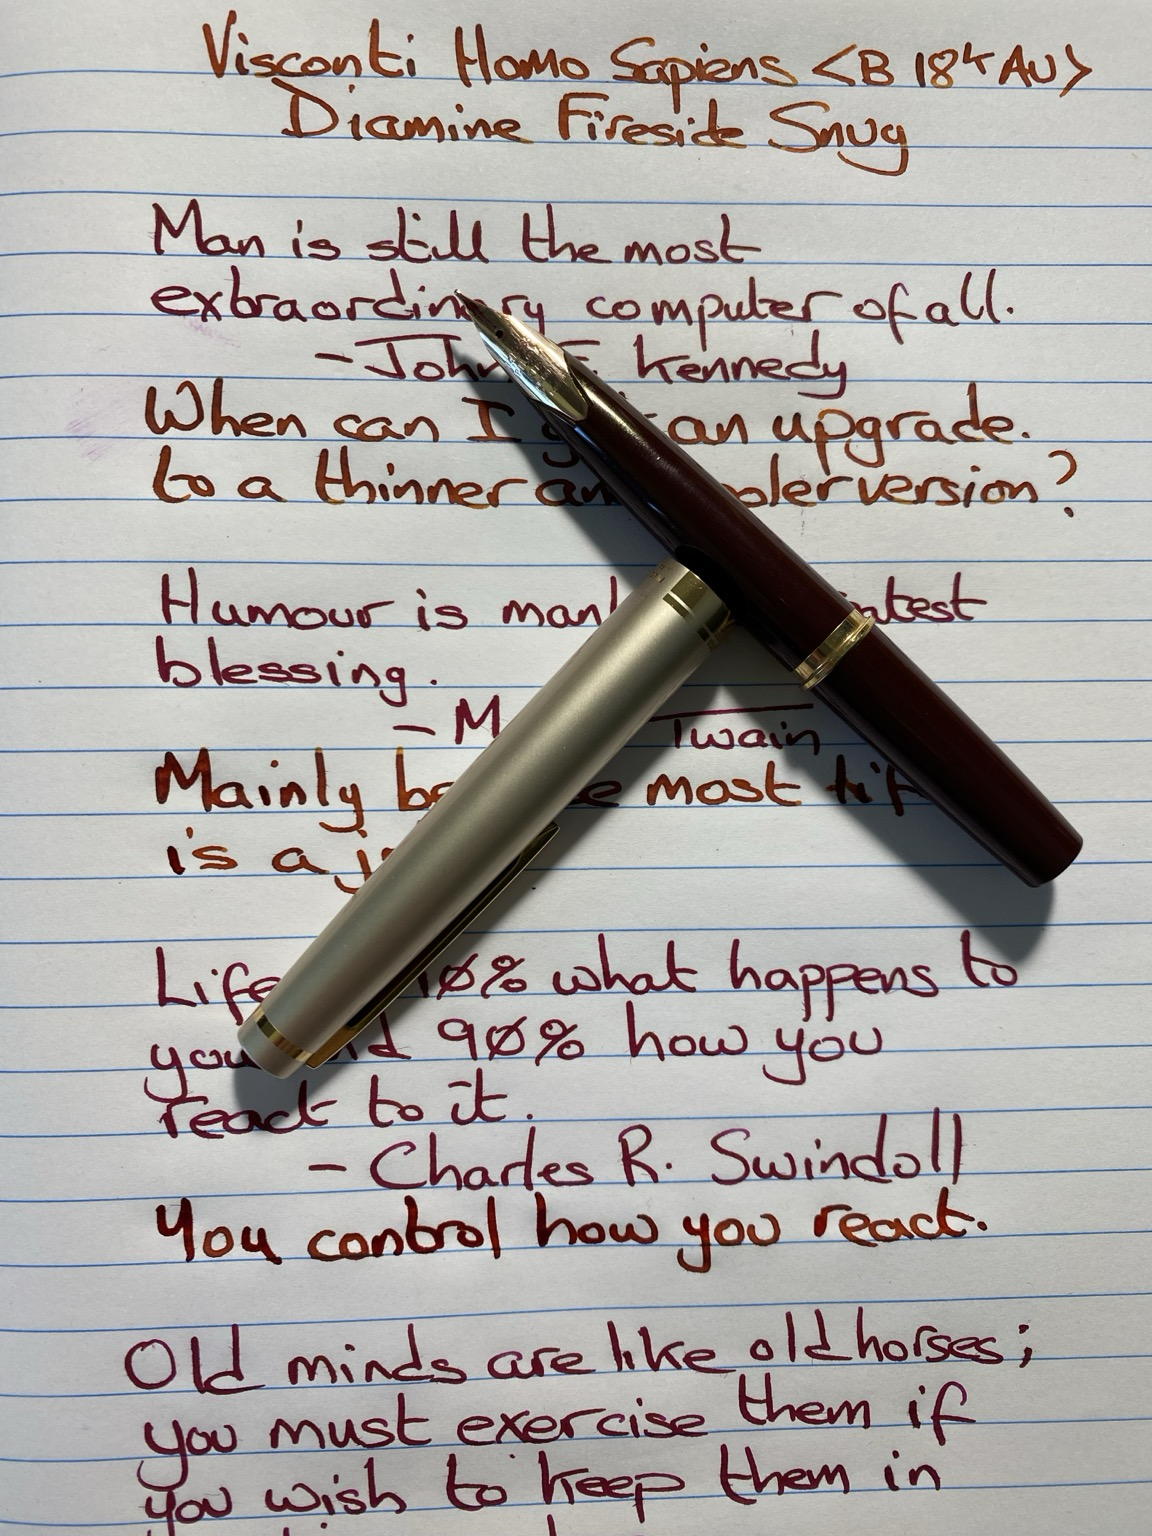 Visconti Homo Sapiens <B 18k AU>
Diamine Fireside Snug
Man is still the most
extraordinary computer of all.
- John F. Kennedy
When can I an upgrade.
to a thinner version?
Humour is
blessing.
- Twain
Mainly most
is a
Life 10% what happens to
you 90% how you
react to it.
- Charles R. Swindoll
You control how you react.
Old minds are like old horses;
you must exercise them if
you wish to keep them in